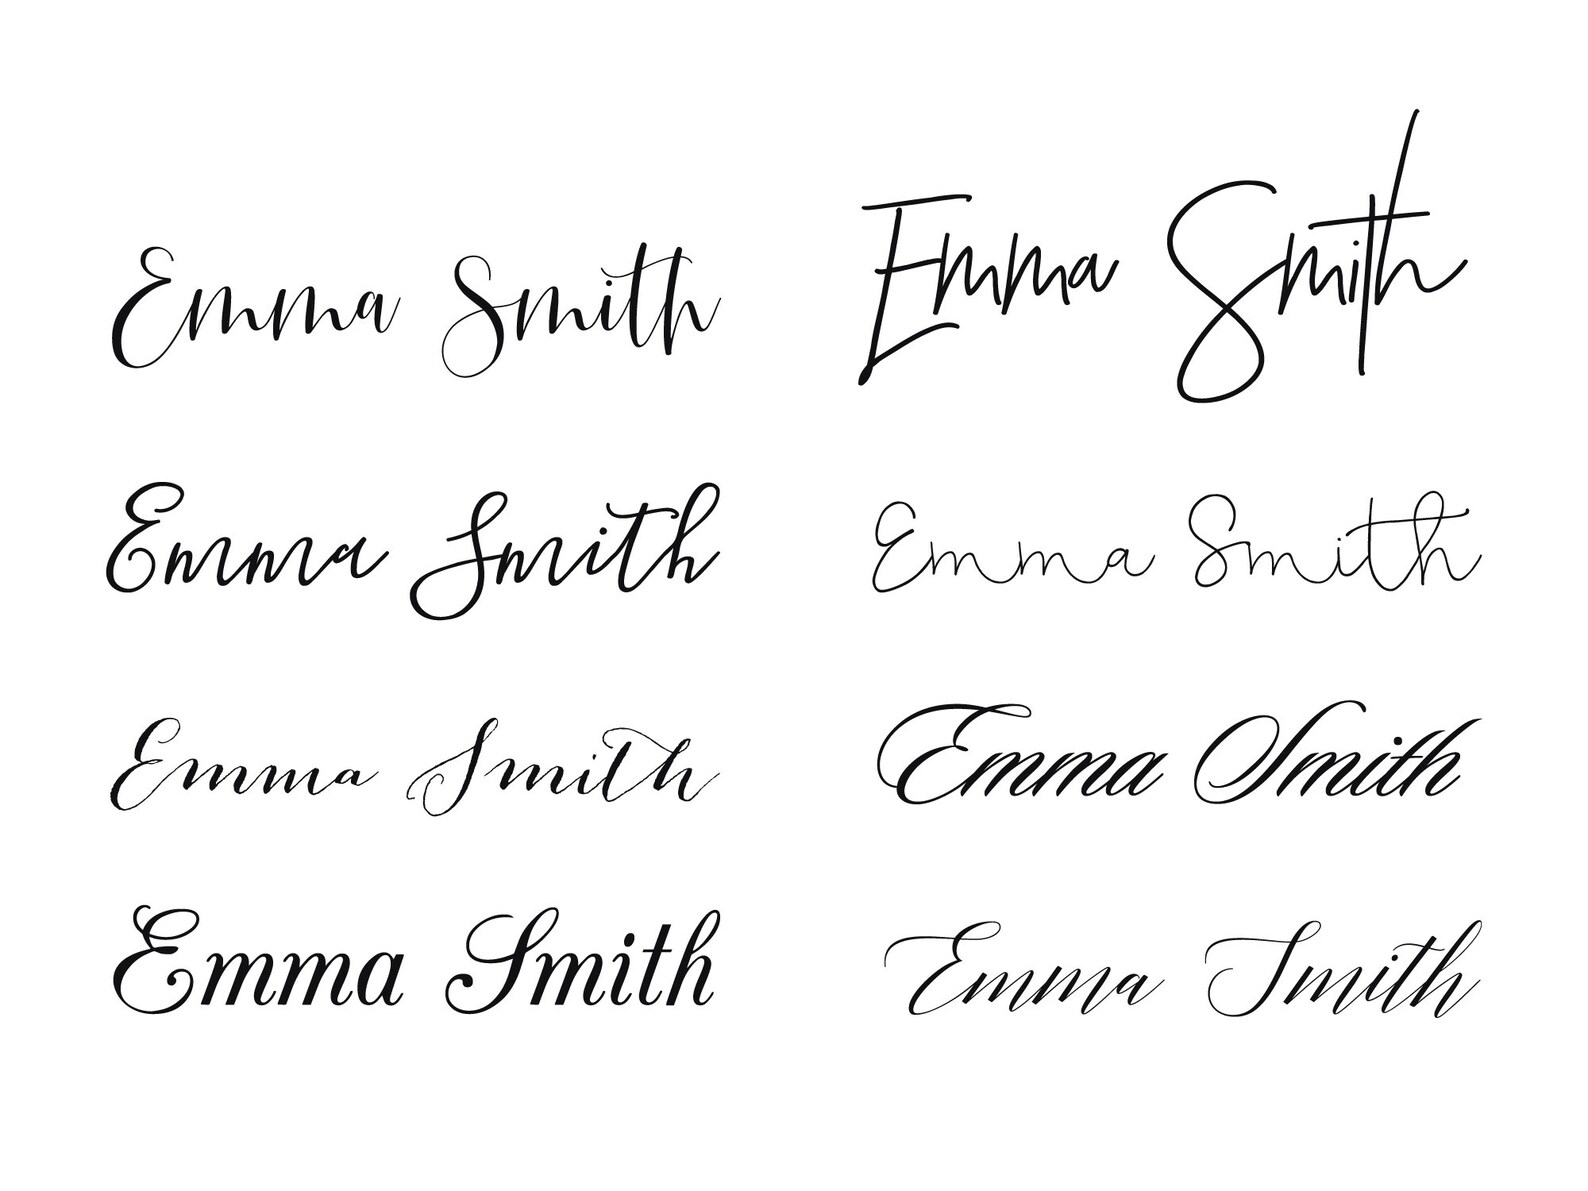 Emma Smith
Emma Smith
Emma Smith
Emma Smith
Emma Smith
Emma Smith
Emma Smith
Emma Smith